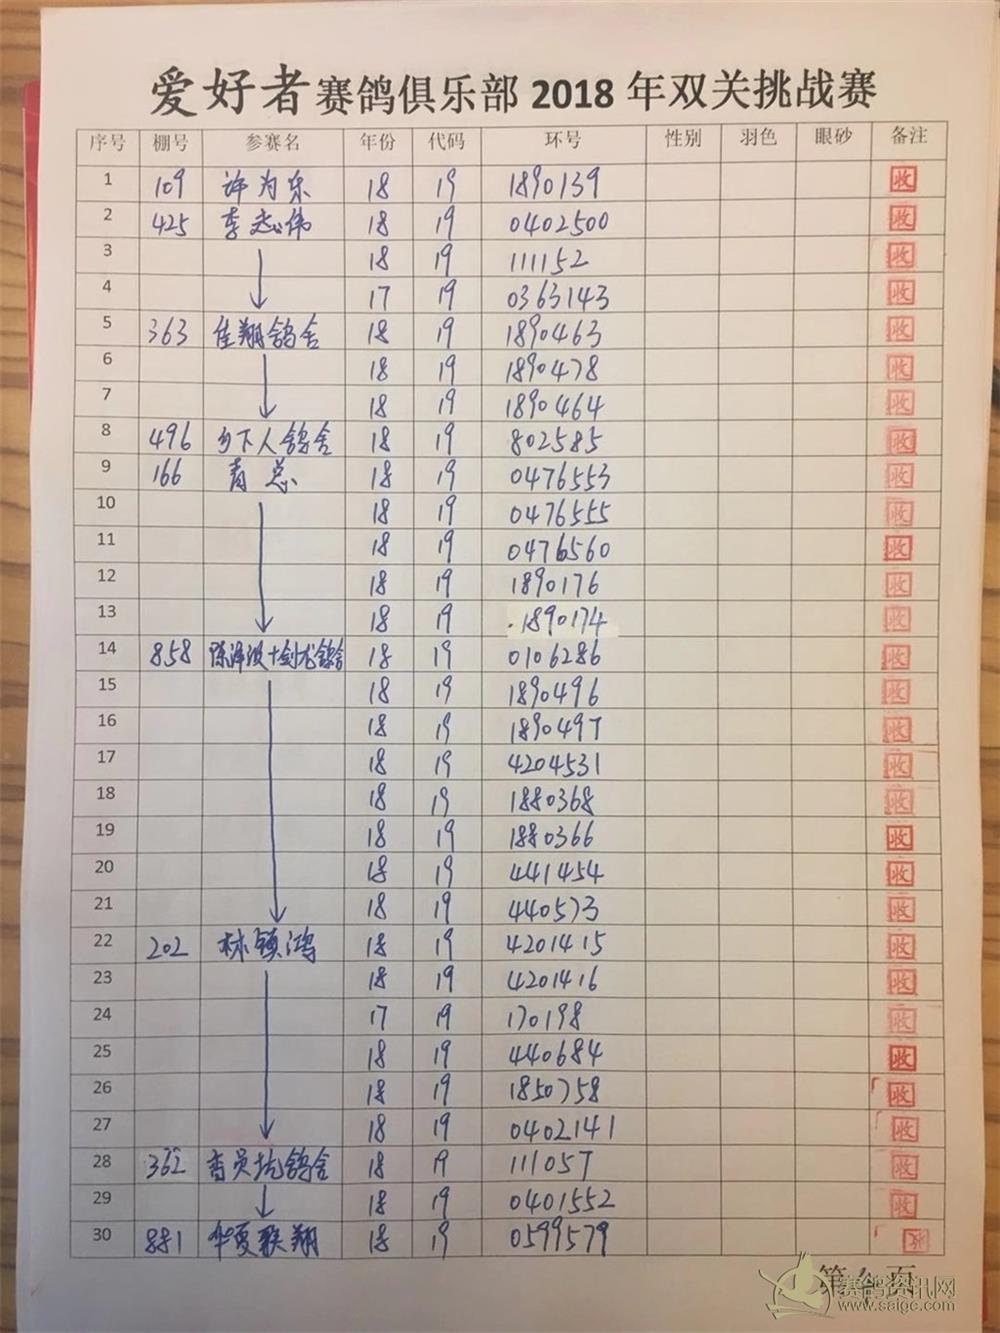 爱好者赛鸽俱乐部2018年双关挑战赛
序号 棚号 参赛名 年份 代码 环号 性别 羽色 眼砂 备注
1 109 许为东 18 19 1890139 收
2 425 李志伟 18 19 0402500 收
3 18 19 111152 收
4 17 19 0363143 收
5 363 佳翔鸽舍 18 19 1890463 收
6 18 19 1890478 收
7 18 19 1890464 收
8 496 乡下人鸽舍 18 19 802585 收
9 166 青总 18 19 0476553 收
10 18 19 0476555 收
11 18 19 0476560 收
12 18 19 1890176 收
13 18 19 1890174 收
14 858 陈泽波+剑龙鸽舍 18 19 0106286 收
15 18 19 1890496 收
16 18 19 1890497 收
17 18 19 4204531 收
18 18 19 1880368 收
19 18 19 1880366 收
20 18 19 441454 收
21 18 19 440573 收
22 202 林镇鸿 18 19 4201415 收
23 18 19 4201416 收
24 17 19 170198 收
25 18 19 440684 收
26 18 19 1850758 收
27 18 19 0402141 收
28 362 员坑鸽舍 18 19 111057 收
29 18 19 0401552 收
30 881 华夏联翔 18 19 0599579 收
第 页
赛鸽资讯网
www.saigc.com